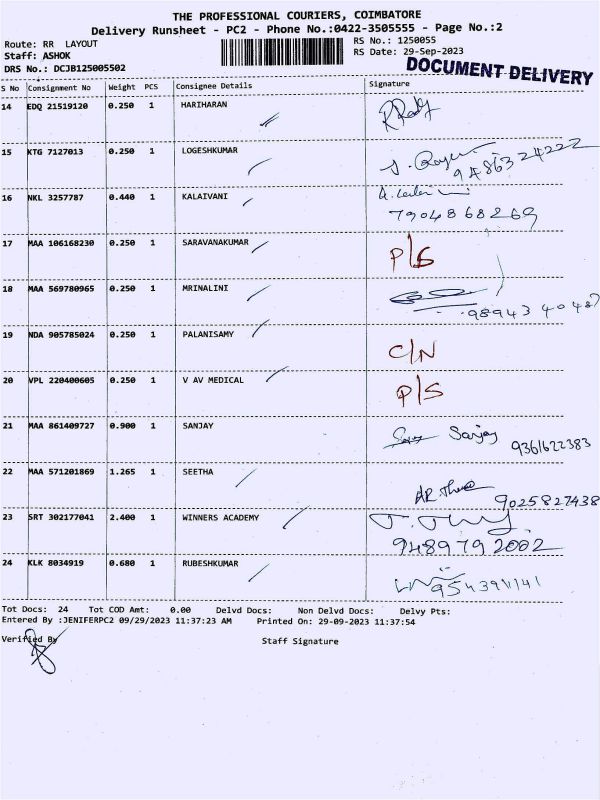 THE PROFESSIONAL COURIERS, COIMBATORE
Delivery Runsheet - PC2 - Phone No.:0422-3505555 - Page No.:2
Route: RR LAYOUT RS No.: 1250055
Staff: ASHOK RS Date: 29-Sep-2023
DRS No.: DCJB125005502 DOCUMENT DELIVERY
S No Consignment No Weight PCS Consignee Details Signature
14 EDQ 21519120 0.250 1 HARIHARAN
15 KTG 7127013 0.250 1 LOGESHKUMAR
9486324222
16 NKL 3257787 0.440 1 KALAIVANI
7904868269
17 MAA 106168230 0.250 1 SARAVANAKUMAR P/S
18 MAA 569780965 0.250 1 MRINALINI
98943 40487
19 NDA 905785024 0.250 1 PALANISAMY C/N
20 VPL 220400605 0.250 1 V AV MEDICAL P/S
21 MAA 861409727 0.900 1 SANJAY Sanjay 9361622383
22 MAA 571201869 1.265 1 SEETHA
9025827438
23 SRT 302177041 2.400 1 WINNERS ACADEMY
9489792002
24 KLK 8034919 0.680 1 RUBESHKUMAR
Tot Docs: 24 Tot COD Amt: 0.00 Delvd Docs: Non Delvd Docs: Delvy Pts:
Entered By :JENIFERPC2 09/29/2023 11:37:23 AM Printed On: 29-09-2023 11:37:54
Verified By Staff Signature